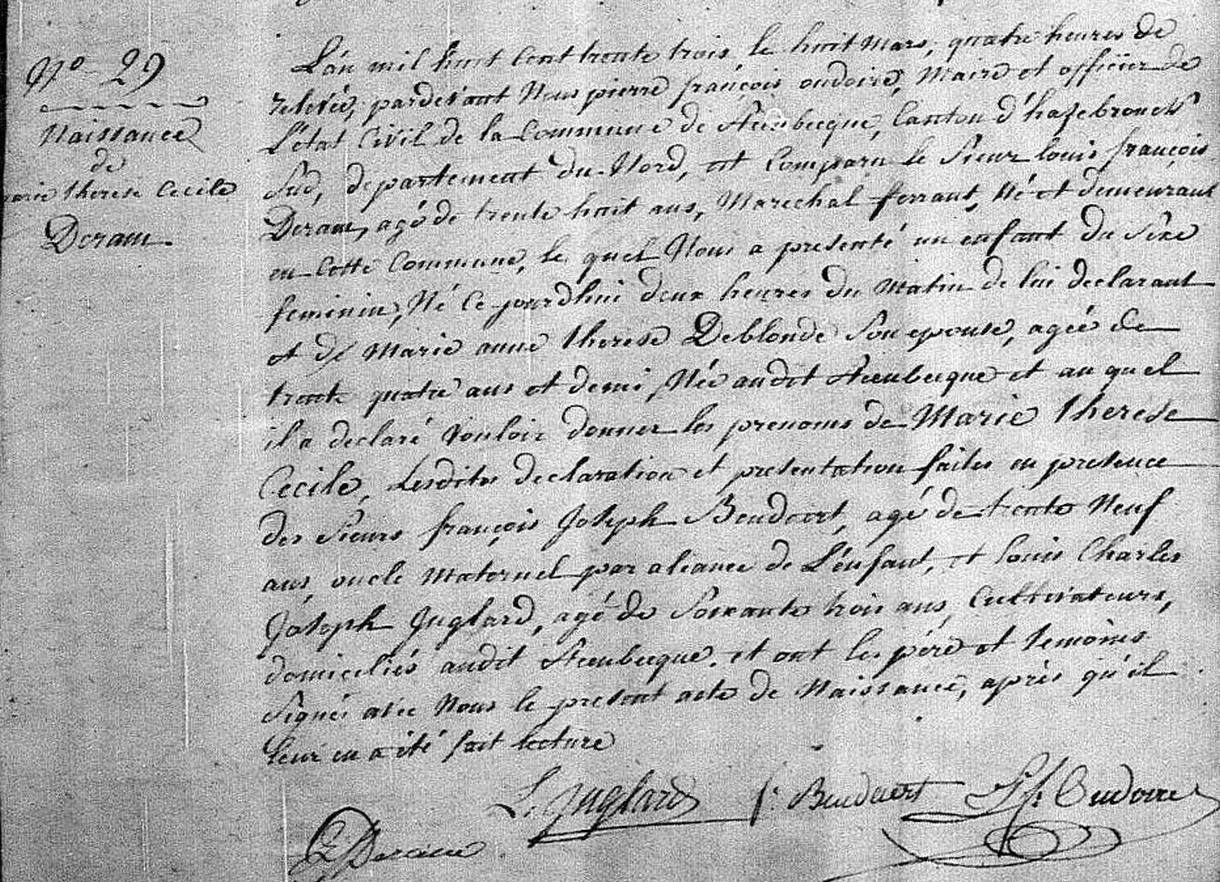 N° 29
Naissance
de
marie therese Cecile
Deram.
L'an mil huit cent trente trois, le huit Mars, quatre heures de
relevée, pardevant Nous pierre françois oudoire, Maire et officier de
L'état Civil de la Commune de Steenbecque, Canton d'hazebrouck
Sud, département du Nord, est Comparu le Sieur louis françois
Deram, agé de trente huit ans, Marechal ferrant, Né et demeurant
en Cette Commune, le quel Nous a presenté un enfant du Séxe
feminin, Né Ce jourdhui deux heures du Matin de lui declarant
et de Marie anne therese Deblonde Son epouse, agée de
trente quatre ans et demi, Née audit Steenbecque et au quel
il a declaré Vouloir donner les prenoms de Marie therese
Cecile, Lesdites declaration et presentation faites en presence
des Sieurs françois Joseph Beudaert, agé de trente Neuf
ans, oncle Maternel par aliance de L'enfant, et louis Charles
Joseph Juglard, agé de Soixante trois ans, Cultivateurs,
domiciliés audit Steenbecque. et ont les pére et temoins
Signés avec Nous le present acte de Naissance, après qu'il
leur en a été fait lecture
L. Juglard f. Beudaert P. fs. Oudoire
L Deram